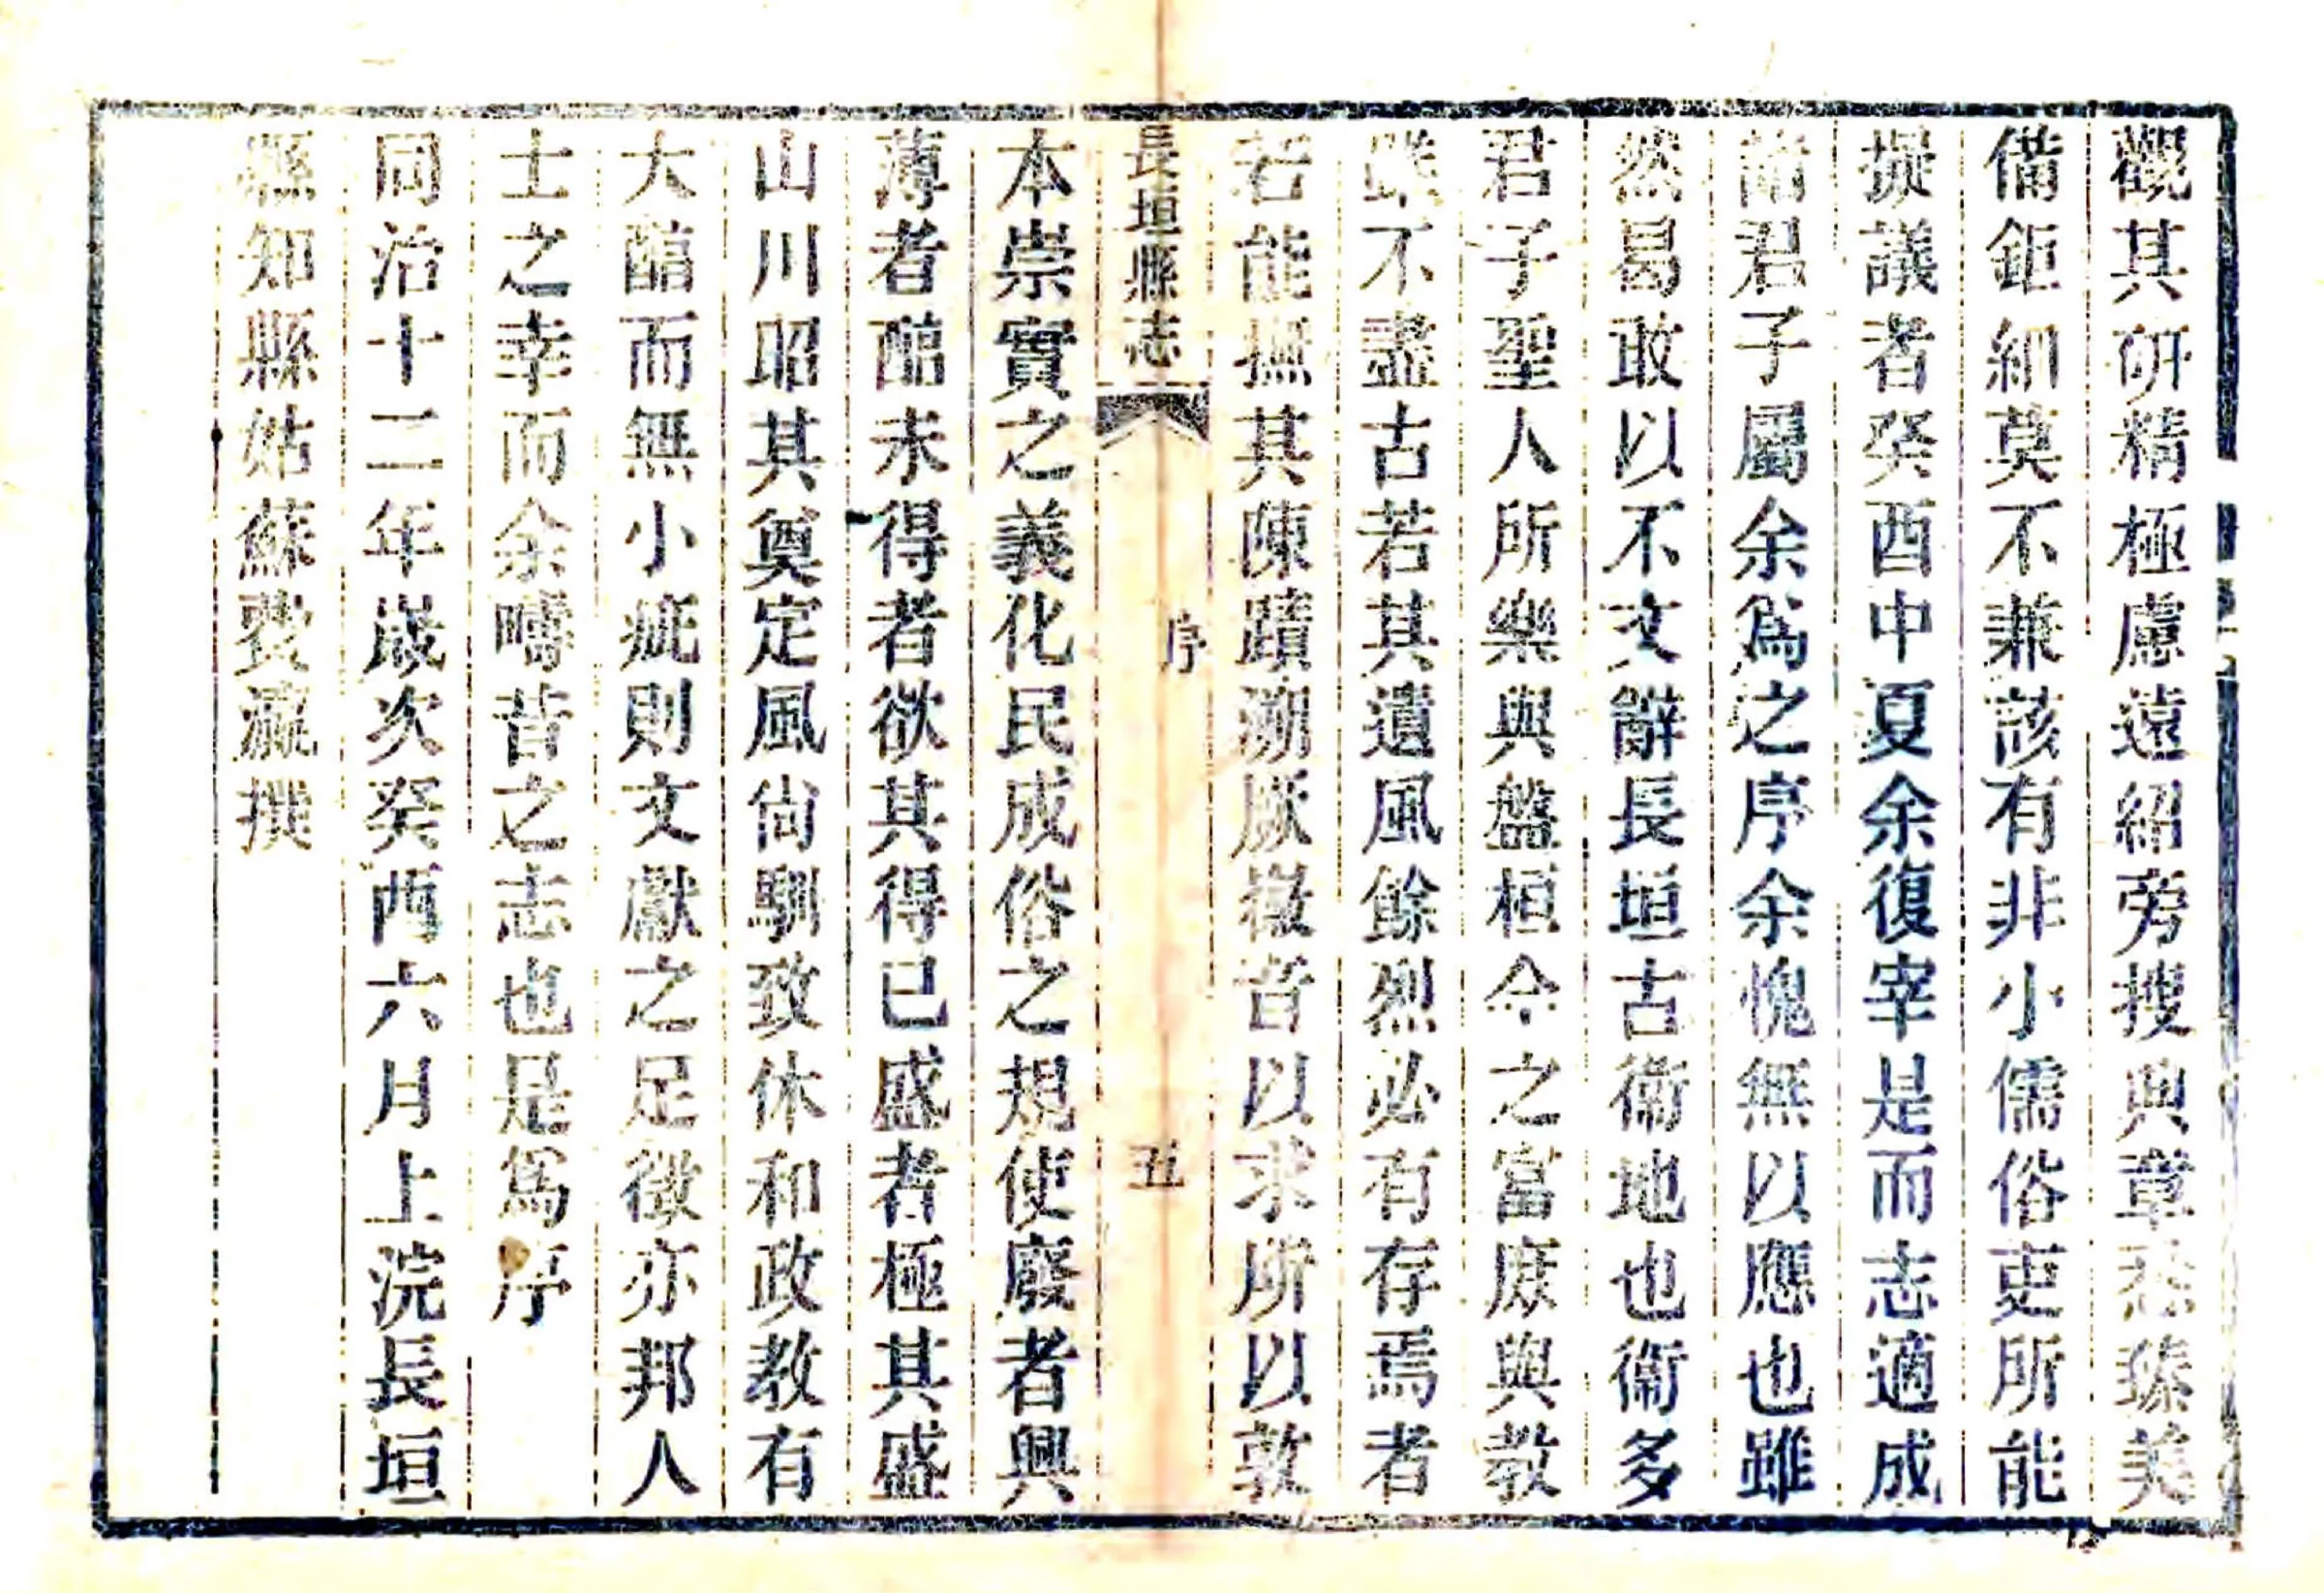 觀其研精極慮遠紹旁搜典章悉臻美
備鉅細莫不兼該有非小儒俗吏所能
擬議者癸酉中夏余復宰是而志適成
諸君子屬余爲之序余愧無以應也雖
然曷敢以不文辭長垣古衞地也衞多
君子聖人所樂與盤桓令之富庶與教
雖不盡古若其遺風餘烈必有存焉者
若能撫其陳蹟溯厥徽音以求所以敦
長垣縣志
序
五
本崇實之義化民成俗之規使廢者興
薄者醕未得者欲其得已盛者極其盛
山川昭其奠定風尙馴致休和政教有
大醕而無小疵則文獻之足徵亦邦人
士之幸而余疇昔之志也是爲序
同治十二年歲次癸酉六月上浣長垣
縣知縣姑蘇費瀛撰